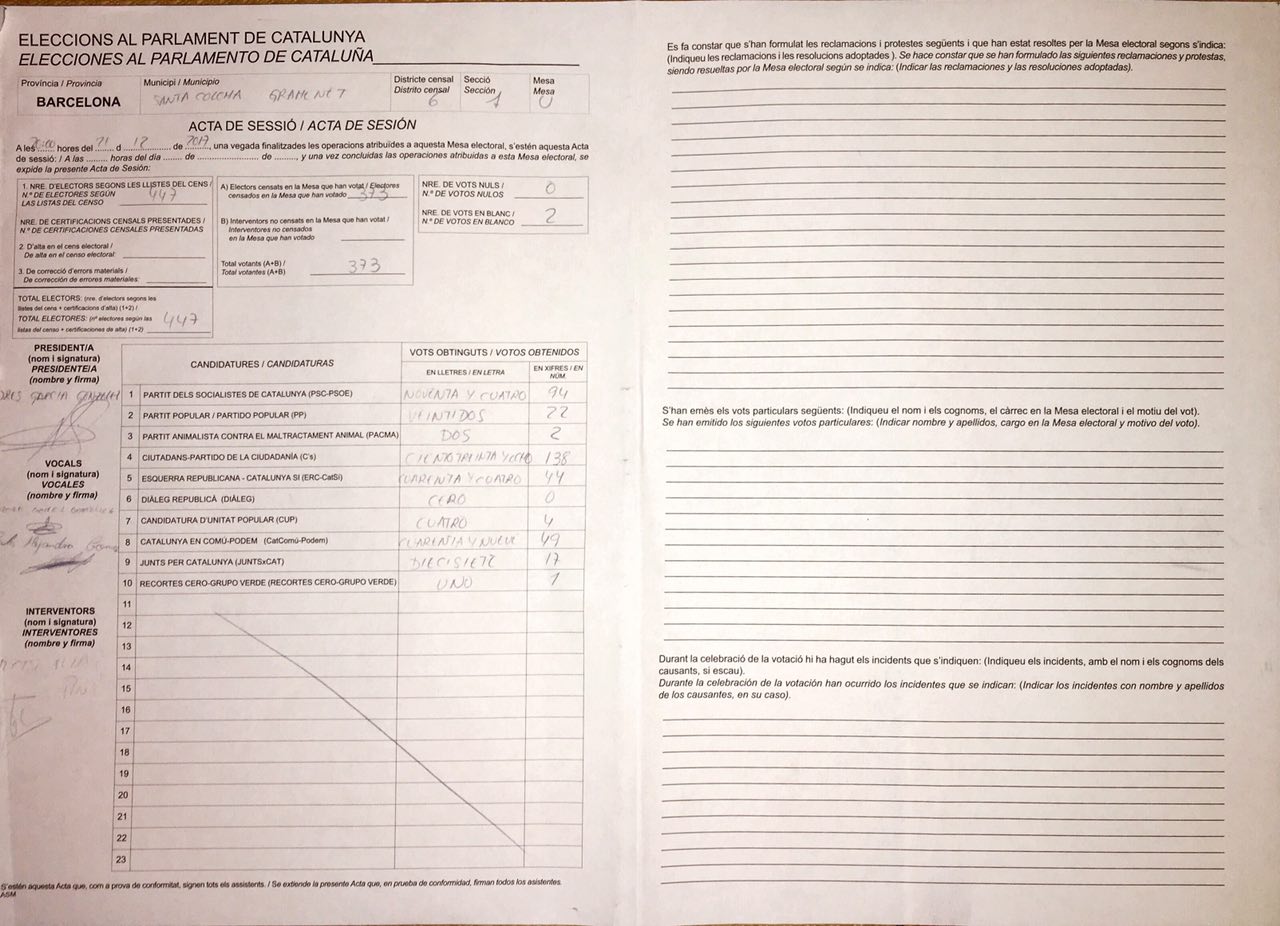 ELECCIONS AL PARLAMENT DE CATALUNYA
ELECCIONES AL PARLAMENTO DE CATALUÑA
Província / Provincia
BARCELONA
Municipi / Municipio
SANTA COLOMA GRAMENET
Districte censal
Distrito censal
6
Secció
Sección
1
Mesa
Mesa
U
ACTA DE SESSIÓ / ACTA DE SESIÓN
A les 20:00 hores del 21 d 12 de 2017, una vegada finalitzades les operacions atribuïdes a aquesta Mesa electoral, s'estén aquesta Acta
de sessió: / A las ......... horas del día ....... de .......................... de ........, y una vez concluidas las operaciones atribuidas a esta Mesa electoral, se
expide la presente Acta de Sesión:
1. NRE. D'ELECTORS SEGONS LES LLISTES DEL CENS /
N.º DE ELECTORES SEGÚN
LAS LISTAS DEL CENSO 447
NRE. DE CERTIFICACIONS CENSALS PRESENTADES /
N.º DE CERTIFICACIONES CENSALES PRESENTADAS
2. D'alta en el cens electoral /
De alta en el censo electoral:
3. De correcció d'errors materials /
De corrección de errores materiales:
TOTAL ELECTORS: (nre. d'electors segons les
llistes del cens + certificacions d'alta) (1+2) /
TOTAL ELECTORES: (nº electores según las
listas del censo + certificaciones de alta) (1+2) 447
A) Electors censats en la Mesa que han votat / Electores
censados en la Mesa que han votado 373
B) Interventors no censats en la Mesa que han votat /
Interventores no censados
en la Mesa que han votado
Total votants (A+B) /
Total votantes (A+B) 373
NRE. DE VOTS NULS /
N.º DE VOTOS NULOS 0
NRE. DE VOTS EN BLANC /
N.º DE VOTOS EN BLANCO 2
PRESIDENT/A
(nom i signatura)
PRESIDENTE/A
(nombre y firma)
GARCIA GONZALEZ
VOCALS
(nom i signatura)
VOCALES
(nombre y firma)
Alejandro
INTERVENTORS
(nom i signatura)
INTERVENTORES
(nombre y firma)
CANDIDATURES / CANDIDATURAS
VOTS OBTINGUTS / VOTOS OBTENIDOS
EN LLETRES / EN LETRA
EN XIFRES / EN NÚM.
1 PARTIT DELS SOCIALISTES DE CATALUNYA (PSC-PSOE) NOVENTA Y CUATRO 94
2 PARTIT POPULAR / PARTIDO POPULAR (PP) VEINTIDOS 22
3 PARTIT ANIMALISTA CONTRA EL MALTRACTAMENT ANIMAL (PACMA) DOS 2
4 CIUTADANS-PARTIDO DE LA CIUDADANÍA (C's) CIENTO TREINTA Y OCHO 138
5 ESQUERRA REPUBLICANA - CATALUNYA SÍ (ERC-CatSí) CUARENTA Y CUATRO 44
6 DIÀLEG REPUBLICÀ (DIÀLEG) CERO 0
7 CANDIDATURA D'UNITAT POPULAR (CUP) CUATRO 4
8 CATALUNYA EN COMÚ-PODEM (CatComú-Podem) CUARENTA Y NUEVE 49
9 JUNTS PER CATALUNYA (JUNTSxCAT) DIECISIETE 17
10 RECORTES CERO-GRUPO VERDE (RECORTES CERO-GRUPO VERDE) UNO 1
11
12
13
14
15
16
17
18
19
20
21
22
23
S'estén aquesta Acta que, com a prova de conformitat, signen tots els assistents. / Se extiende la presente Acta que, en prueba de conformidad, firman todos los asistentes.
ASM
Es fa constar que s'han formulat les reclamacions i protestes següents i que han estat resoltes per la Mesa electoral segons s'indica:
(Indiqueu les reclamacions i les resolucions adoptades ). Se hace constar que se han formulado las siguientes reclamaciones y protestas,
siendo resueltas por la Mesa electoral según se indica: (Indicar las reclamaciones y las resoluciones adoptadas).
S'han emès els vots particulars següents: (Indiqueu el nom i els cognoms, el càrrec en la Mesa electoral i el motiu del vot).
Se han emitido los siguientes votos particulares: (Indicar nombre y apellidos, cargo en la Mesa electoral y motivo del voto).
Durant la celebració de la votació hi ha hagut els incidents que s'indiquen: (Indiqueu els incidents, amb el nom i els cognoms dels
causants, si escau).
Durante la celebración de la votación han ocurrido los incidentes que se indican: (Indicar los incidentes con nombre y apellidos
de los causantes, en su caso).